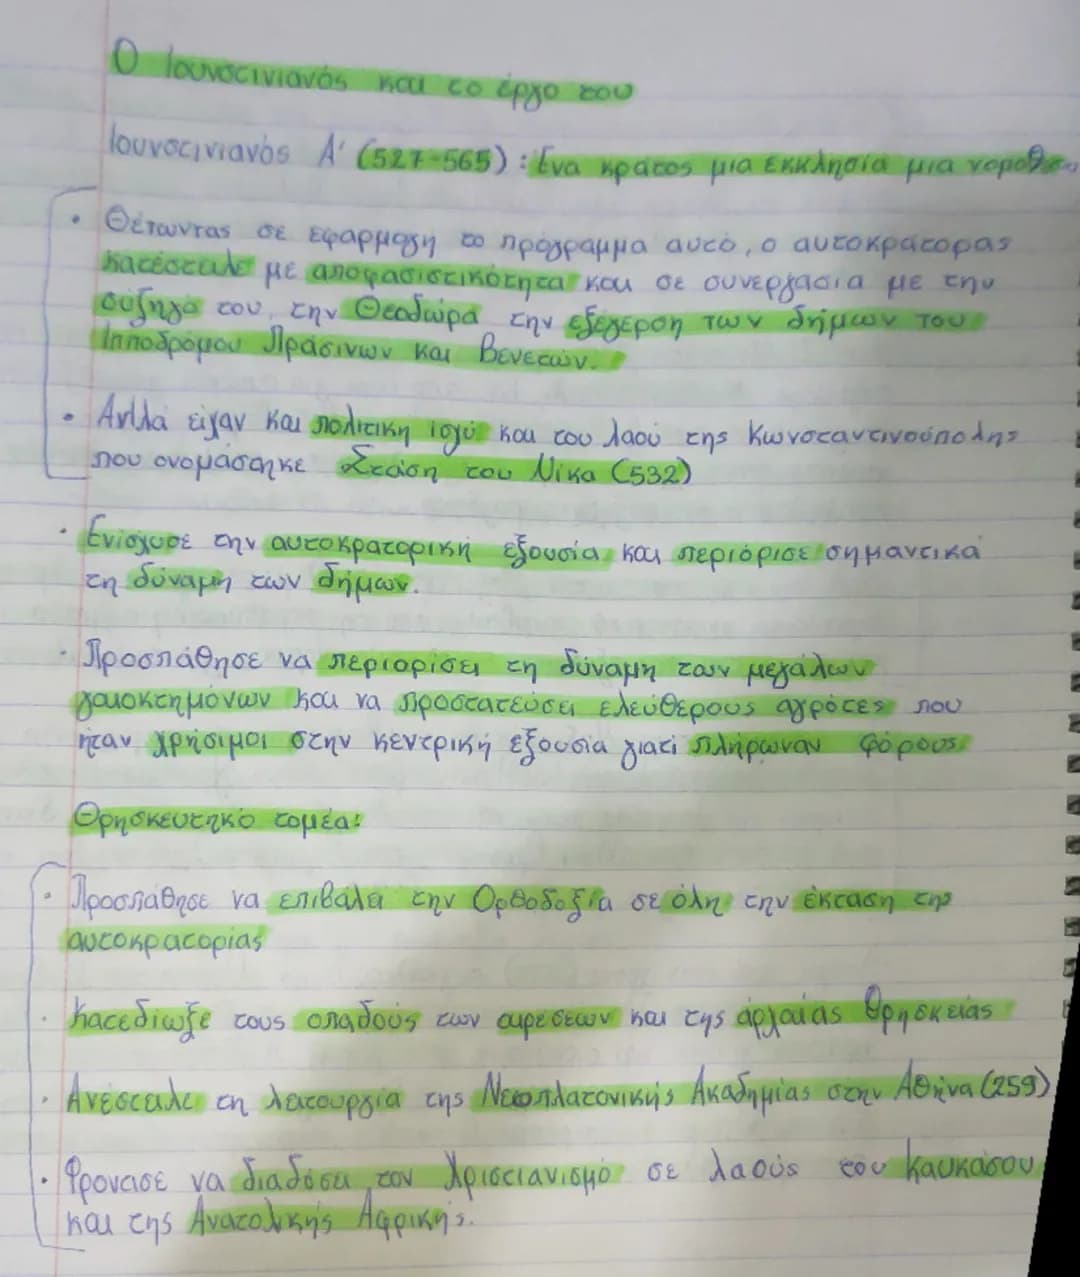 Ο Ιουνστινιανός και το έργο του
Ιουνστινιανός Α' (527-565) : Ένα κράτος μια εκκλησία μια νομοθε
• Θέτωντας σε εφαρμογη το πρόγραμμα αυτό, ο αυτοκράτορας
κατέστειλε με αποφασιστικότητα και σε συνεργασια με την
σύζηγό του, την Θεοδώρα την εξέγερση των δήμων του
Ιπποδρόμου Πράσινων και Βενετών.
• Αλλά είχαν και πολιτική ισχύ και του λαού της Κωνσταντινούπολης
που ονομάστηκε Στάση του Νίκα (532)
• Ενίσχυσε την αυτοκρατορική εξουσία και περιόρισε σημαντικά
τη δύναμη των δήμων.
• Προσπάθησε να περιορίσει τη δύναμη των μεγάλων
γαιοκτημόνων και να προστατεύσει ελεύθερους αγρότες που
ήταν χρήσιμοι στην κεντρική εξουσία γιατί πλήρωναν φόρους
Θρησκευτηκό τομέα:
• Προσπάθησε να επιβάλει την Ορθοδοξία σε όλη την έκταση της
αυτοκρατορίας
• Κατεδίωξε τους οπαδούς των αιρέσεων και της αρχαίας θρησκείας
• Ανέστειλε τη λειτουργία της Νεοπλατονικής Ακαδημίας στην Αθήνα (259)
• Φρόντισε να διαδόσει τον Χριστιανισμό σε λαούς του Καυκάσου
και της Ανατολικής Αφρικής.